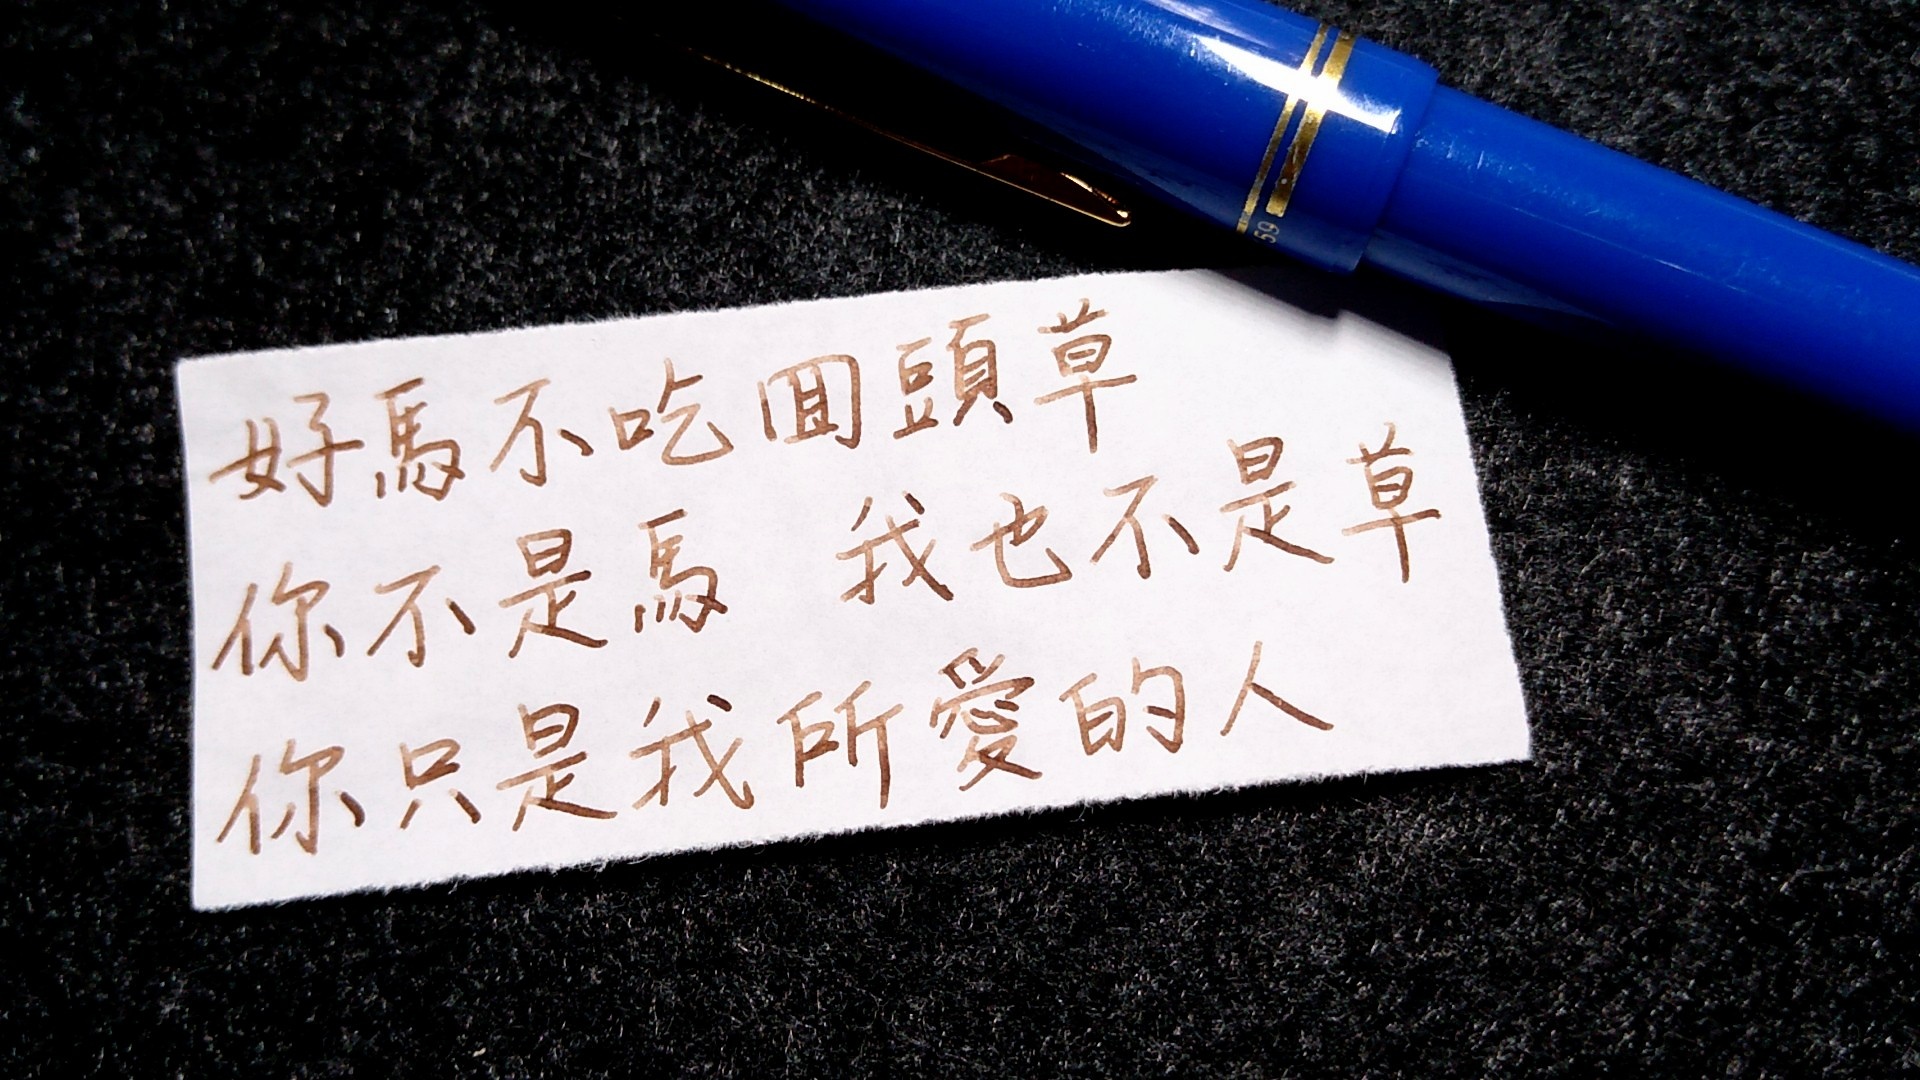 好馬不吃囬頭草
你不是馬 我也不是草
你只是我所愛的人
59